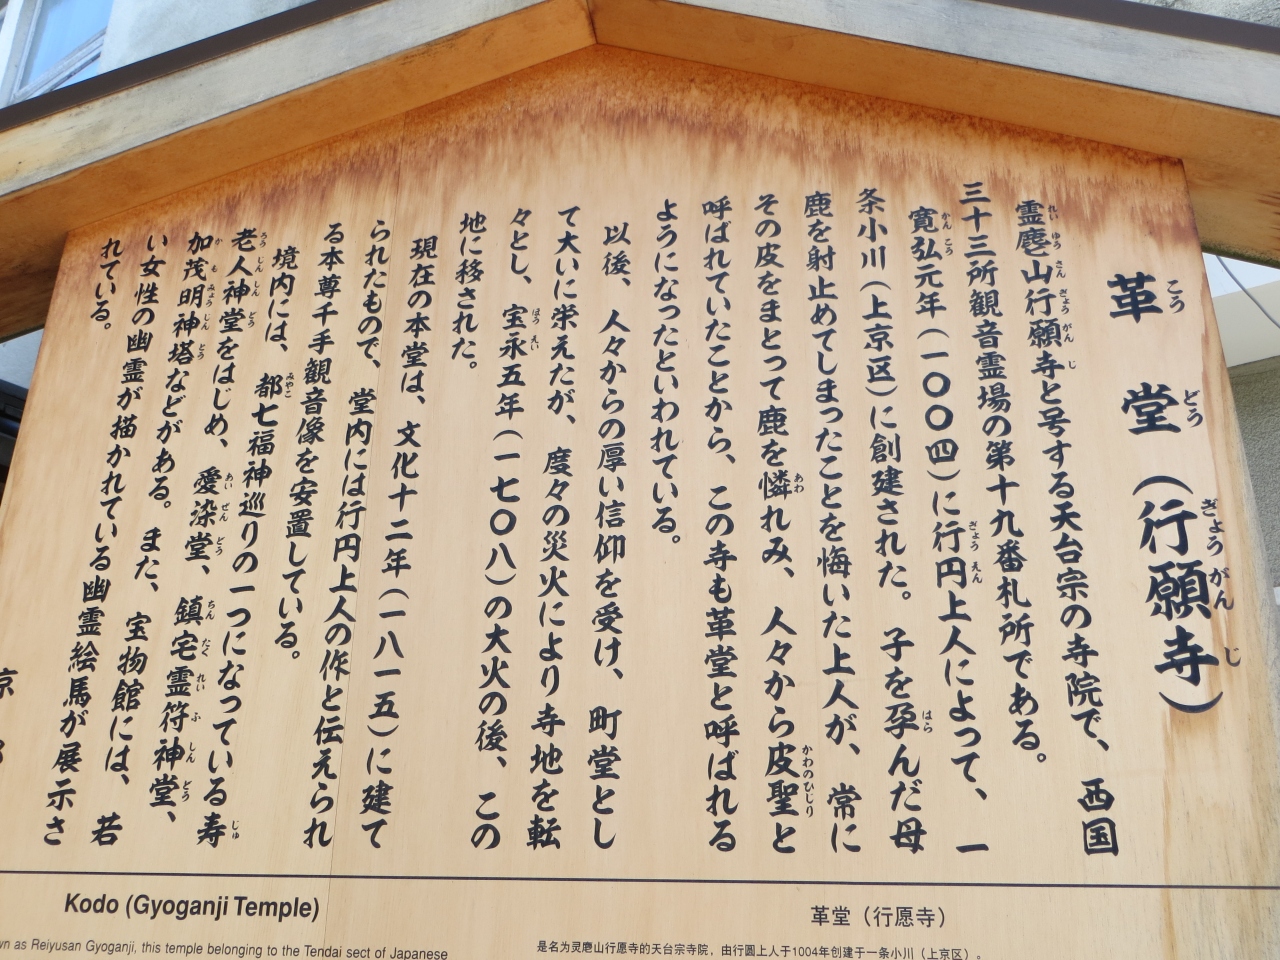 革堂（行願寺）
こうどう ぎょうがんじ
霊麀山行願寺と号する天台宗の寺院で、西国
れいゆうさんぎょうがんじ
三十三所観音霊場の第十九番札所である。
寛弘元年（一〇〇四）に行円上人によって、一
かんこう ぎょうえん
条小川（上京区）に創建された。子を孕んだ母
はら
鹿を射止めてしまったことを悔いた上人が、常に
その皮をまとって鹿を憐れみ、人々から皮聖と
あわ かわのひじり
呼ばれていたことから、この寺も革堂と呼ばれる
ようになったといわれている。
以後、人々からの厚い信仰を受け、町堂とし
て大いに栄えたが、度々の災火により寺地を転
々とし、宝永五年（一七〇八）の大火の後、この
ほうえい
地に移された。
現在の本堂は、文化十二年（一八一五）に建て
られたもので、堂内には行円上人の作と伝えられ
る本尊千手観音像を安置している。
境内には、都七福神巡りの一つになっている寿
みやこ じゅ
老人神堂をはじめ、愛染堂、鎮宅霊符神堂、
ろうじんしんどう あいぜんどう ちんたくれいふしんどう
加茂明神塔などがある。また、宝物館には、若
かもみょうじんとう
い女性の幽霊が描かれている幽霊絵馬が展示さ
れている。
京
Kodo (Gyoganji Temple)
wn as Reiyusan Gyoganji, this temple belonging to the Tendai sect of Japanese
革堂（行愿寺）
是名为灵麀山行愿寺的天台宗寺院，由行圆上人于1004年创建于一条小川（上京区）。